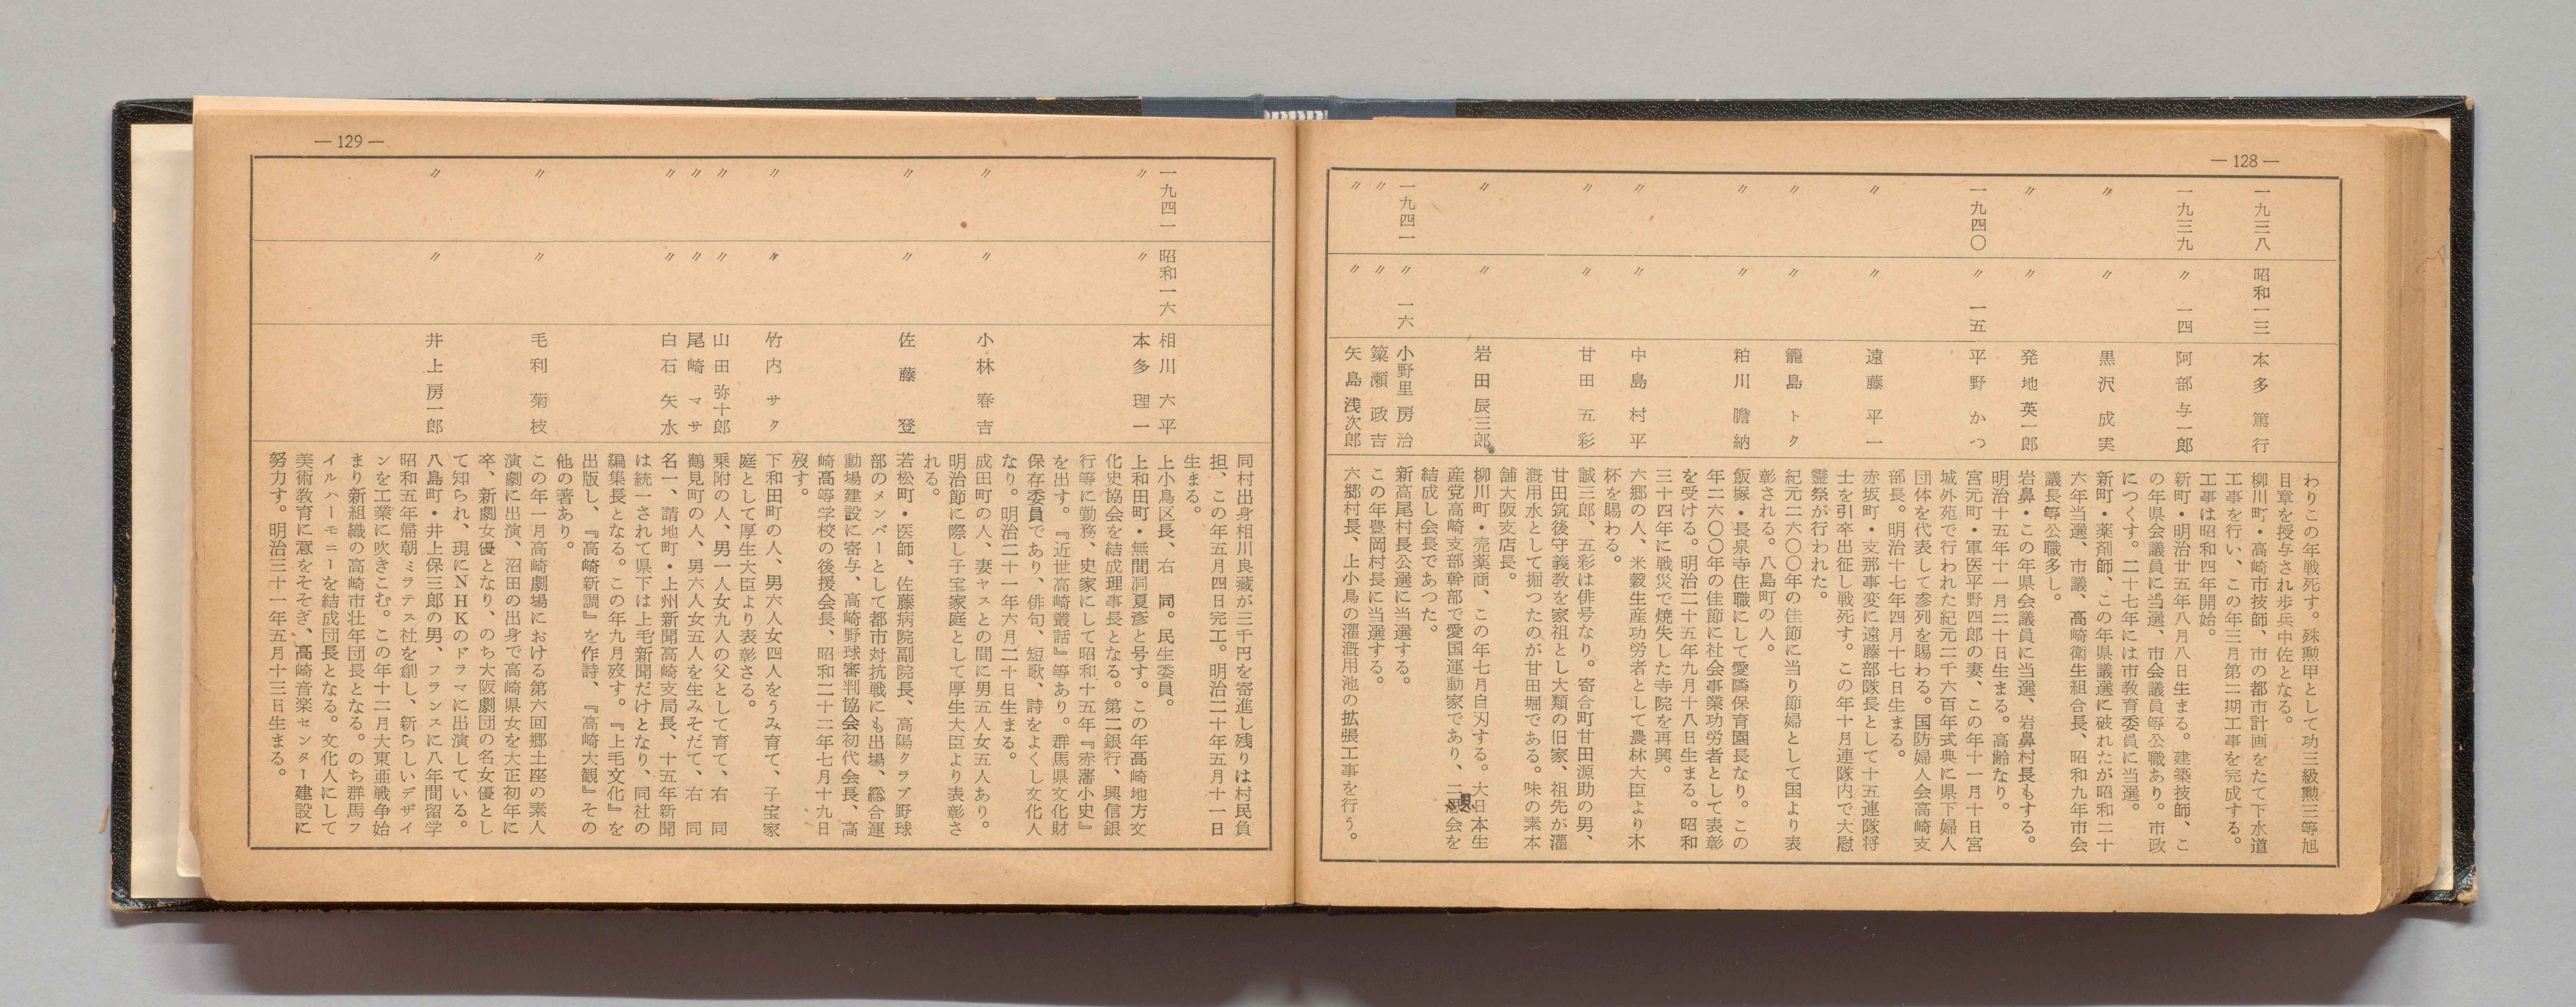 — 128 —
わりこの年戦死す。殊勲甲として功三級勲三等旭
日章を授与され歩兵中佐となる。
一九三八 昭和一三 本多篤行 柳川町・高崎市技師、市の都市計画をたて下水道
工事を行い、この年三月第二期工事を完成する。
工事は昭和四年開始。
一九三九 〃一四 阿部与一郎 新町・明治廿五年八月八日生まる。建築技師、こ
の年県会議員に当選、市会議員等公職あり。市政
につくす。二十七年には市教育委員に当選。
〃 〃 黒沢成実 新町・薬剤師、この年県議選に破れたが昭和二十
六年当選、市議、高崎衛生組合長、昭和九年市会
議長等公職多し。
〃 〃 発地英一郎 岩鼻・この年県会議員に当選、岩鼻村長もする。
明治十五年十一月二十日生まる。高齢なり。
一九四〇 〃一五 平野かつ 宮元町・軍医平野四郎の妻、この年十一月十日宮
城外苑で行われた紀元二千六百年式典に県下婦人
団体を代表して参列を賜わる。国防婦人会高崎支
部長。明治十七年四月十七日生まる。
〃 〃 遠藤平一 赤坂町・支那事変に遠藤部隊長として十五連隊将
士を引卒出征し戦死す。この年十月連隊内で大慰
霊祭が行われた。
〃 〃 籠島トク 紀元二六〇〇年の佳節に当り節婦として国より表
彰される。八島町の人。
〃 〃 粕川膽納 飯塚・長泉寺住職にして愛隣保育園長なり。この
年二六〇〇年の佳節に社会事業功労者として表彰
を受ける。明治二十五年九月十八日生まる。昭和
三十四年に戦災で焼失した寺院を再興。
〃 〃 中島村平 六郷の人、米穀生産功労者として農林大臣より木
杯を賜わる。
〃 〃 甘田五彩 誠三郎、五彩は俳号なり。寄合町甘田源助の男、
甘田筑後守義教を家祖とし大類の旧家、祖先が灌
漑用水として掘つたのが甘田堀である。味の素本
舗大阪支店長。
〃 〃 岩田辰三郎 柳川町・売薬商、この年七月自刃する。大日本生
産党高崎支部幹部で愛国運動家であり、二会を
結成し会長であつた。
一九四一 〃一六 小野里房治 新高尾村長公選に当選する。
〃 〃 簗瀬政吉 この年豊岡村長に当選する。
〃 〃 矢島浅次郎 六郷村長、上小鳥の灌漑用池の拡張工事を行う。
— 129 —
同村出身相川良藏が三千円を寄進し残りは村民負
担、この年五月四日完工。明治二十年五月十一日
生まる。
一九四一 昭和一六 相川六平 上小鳥区長、右　同。民生委員。
〃 〃 本多理一 上和田町・無間洞夏彦と号す。この年高崎地方文
化史協会を結成理事長となる。第二銀行、興信銀
行等に勤務、史家にして昭和十五年『赤藩小史』
を出す。『近世高崎叢話』等あり。群馬県文化財
保存委員であり、俳句、短歌、詩をよくし文化人
なり。明治二十一年六月二十日生まる。
〃 〃 小林春吉 成田町の人、妻ヤスとの間に男五人女五人あり。
明治節に際し子宝家庭として厚生大臣より表彰さ
れる。
〃 〃 佐藤登 若松町・医師、佐藤病院副院長、高陽クラブ野球
部のメンバーとして都市対抗戦にも出場、総合運
動場建設に寄与、高崎野球審判協会初代会長、高
崎高等学校の後援会長、昭和二十二年七月十九日
歿す。
〃 〃 竹内サク 下和田町の人、男六人女四人をうみ育て、子宝家
庭として厚生大臣より表彰さる。
〃 〃 山田弥十郎 乗附の人、男一人女九人の父として育て、右　同
〃 〃 尾崎マサ 鶴見町の人、男六人女五人を生みそだて、右　同
〃 〃 白石矢水 名一、請地町・上州新聞高崎支局長、十五年新聞
は統一されて県下は上毛新聞だけとなり、同社の
編集長となる。この年九月歿す。『上毛文化』を
出版し、『高崎新調』を作詩、『高崎大観』その
他の著あり。
〃 〃 毛利菊枝 この年一月高崎劇場における第六回郷土座の素人
演劇に出演、沼田の出身で高崎県女を大正初年に
卒、新劇女優となり、のち大阪劇団の名女優とし
て知られ、現にNHKのドラマに出演している。
〃 〃 井上房一郎 八島町・井上保三郎の男、フランスに八年間留学
昭和五年帰朝ミラテス社を創し、新らしいデザイ
ンを工業に吹きこむ。この年十二月大東亜戦争始
まり新組織の高崎市壮年団長となる。のち群馬フ
イルハーモニーを結成団長となる。文化人にして
美術教育に意をそそぎ、高崎音楽センター建設に
努力す。明治三十一年五月十三日生まる。